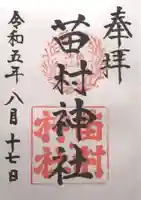 奉拝
苗村神社
令和五年八月十七日
苗村
神社